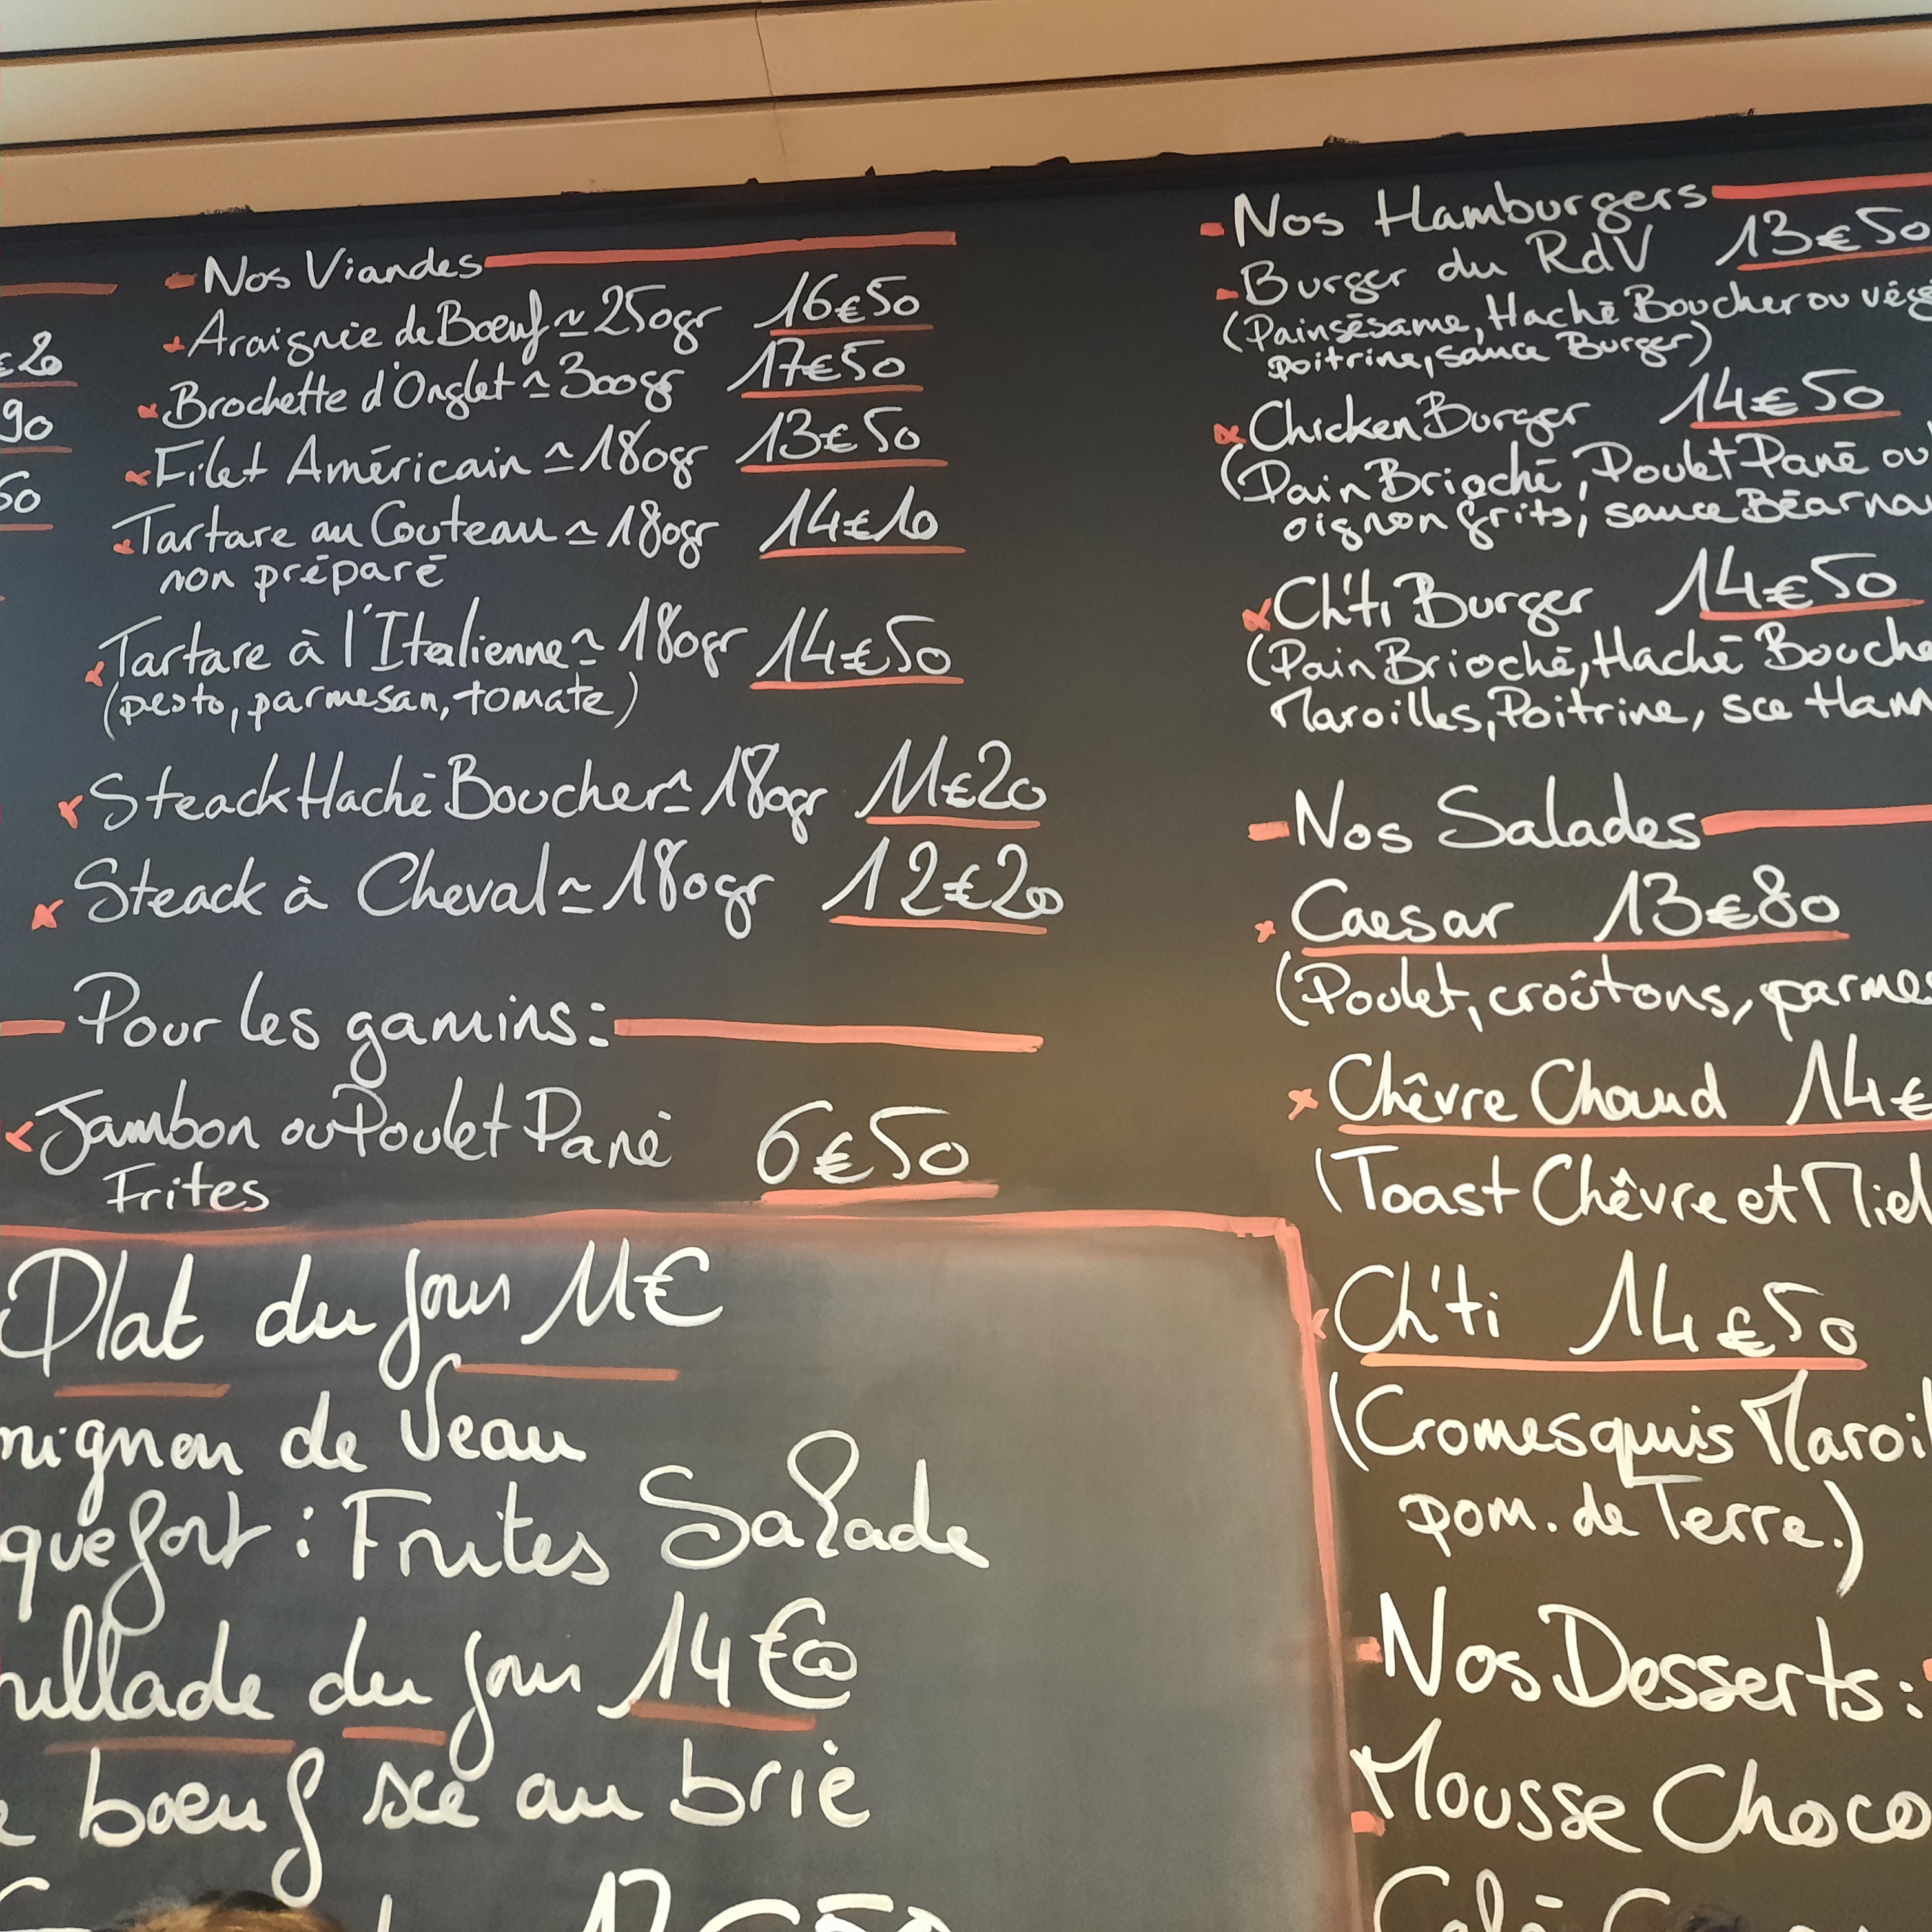 €20
90
50
- Nos Viandes
Araignée de Boeuf ≃ 250gr 16€50
Brochette d'Onglet ≃ 300gr 17€50
Filet Américain ≃ 180gr 13€50
Tartare au Couteau ≃ 180gr 14€10
non préparé
Tartare à l'Italienne ≃ 180gr 14€50
(pesto, parmesan, tomate)
Steack Haché Boucher ≃ 180gr 11€20
Steack à Cheval ≃ 180gr 12€20
- Pour les gamins:
Jambon ou Poulet Pané 6€50
Frites
Plat du jour 11€
mignon de Veau
quefort : Frites Salade
illade du jour 14€00
boeuf sce au brie
- Nos Hamburgers
- Burger du RdV 13€50
(Pain sésame, Haché Boucher ou végé
poitrine, sauce Burger)
Chicken Burger 14€50
(Pain Brioché, Poulet Pané ou
oignon frits, sauce Béarna
Ch'ti Burger 14€50
(Pain Brioché, Haché Bouche
Maroilles, Poitrine, sce Ham
- Nos Salades
Caesar 13€80
(Poulet, croûtons, parmes
Chêvre Chaud 14€
(Toast Chêvre et Miel
Ch'ti 14€50
(Cromesquis Maroil
pom. de Terre.)
- Nos Desserts:
- Mousse Choco